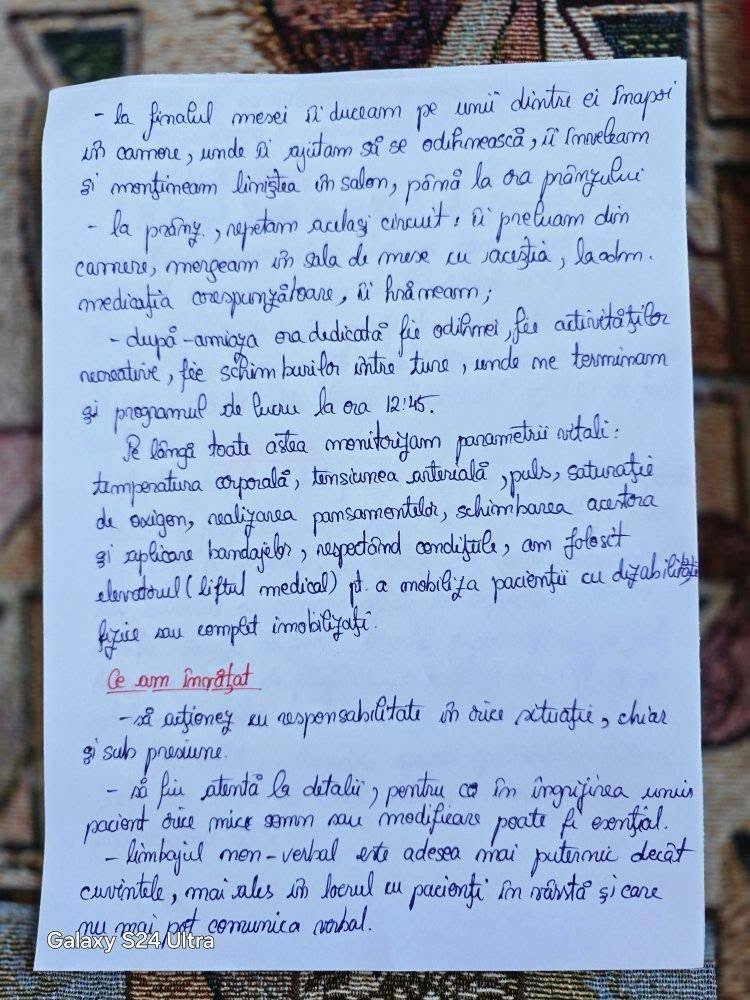 - la finalul mesei îi duceam pe unii dintre ei înapoi
în camere, unde îi ajutam să se odihnească, îi înveleam
și mențineam liniștea în salon, până la ora prânzului
- la prânz, repetam același circuit: îi preluam din
camere, mergeam în sala de mese cu aceștia, la adm.
medicația corespunzătoare, îi hrăneam;
- după-amiaza era dedicată fie odihnei, fie activităților
recreative, fie schimburilor între ture, unde ne terminam
și programul de lucru la ora 12:45.
Pe lângă toate astea monitorizam parametrii vitali:
temperatura corporală, tensiunea arterială, puls, saturație
de oxigen, realizarea pansamentelor, schimbarea acestora
și aplicare bandajelor, respectând condițiile, am folosit
elevatorul (liftul medical) pt. a mobiliza pacienții cu dizabilități
fizice sau complet imobilizați.
Ce am învățat
- să acționez cu responsabilitate în orice situație, chiar
și sub presiune.
- să fiu atentă la detalii, pentru că în îngrijirea unui
pacient orice mic semn sau modificare poate fi esențial.
- limbajul non-verbal este adesea mai puternic decât
cuvintele, mai ales în lucrul cu pacienți în vârstă și care
nu mai pot comunica verbal.
Galaxy S24 Ultra